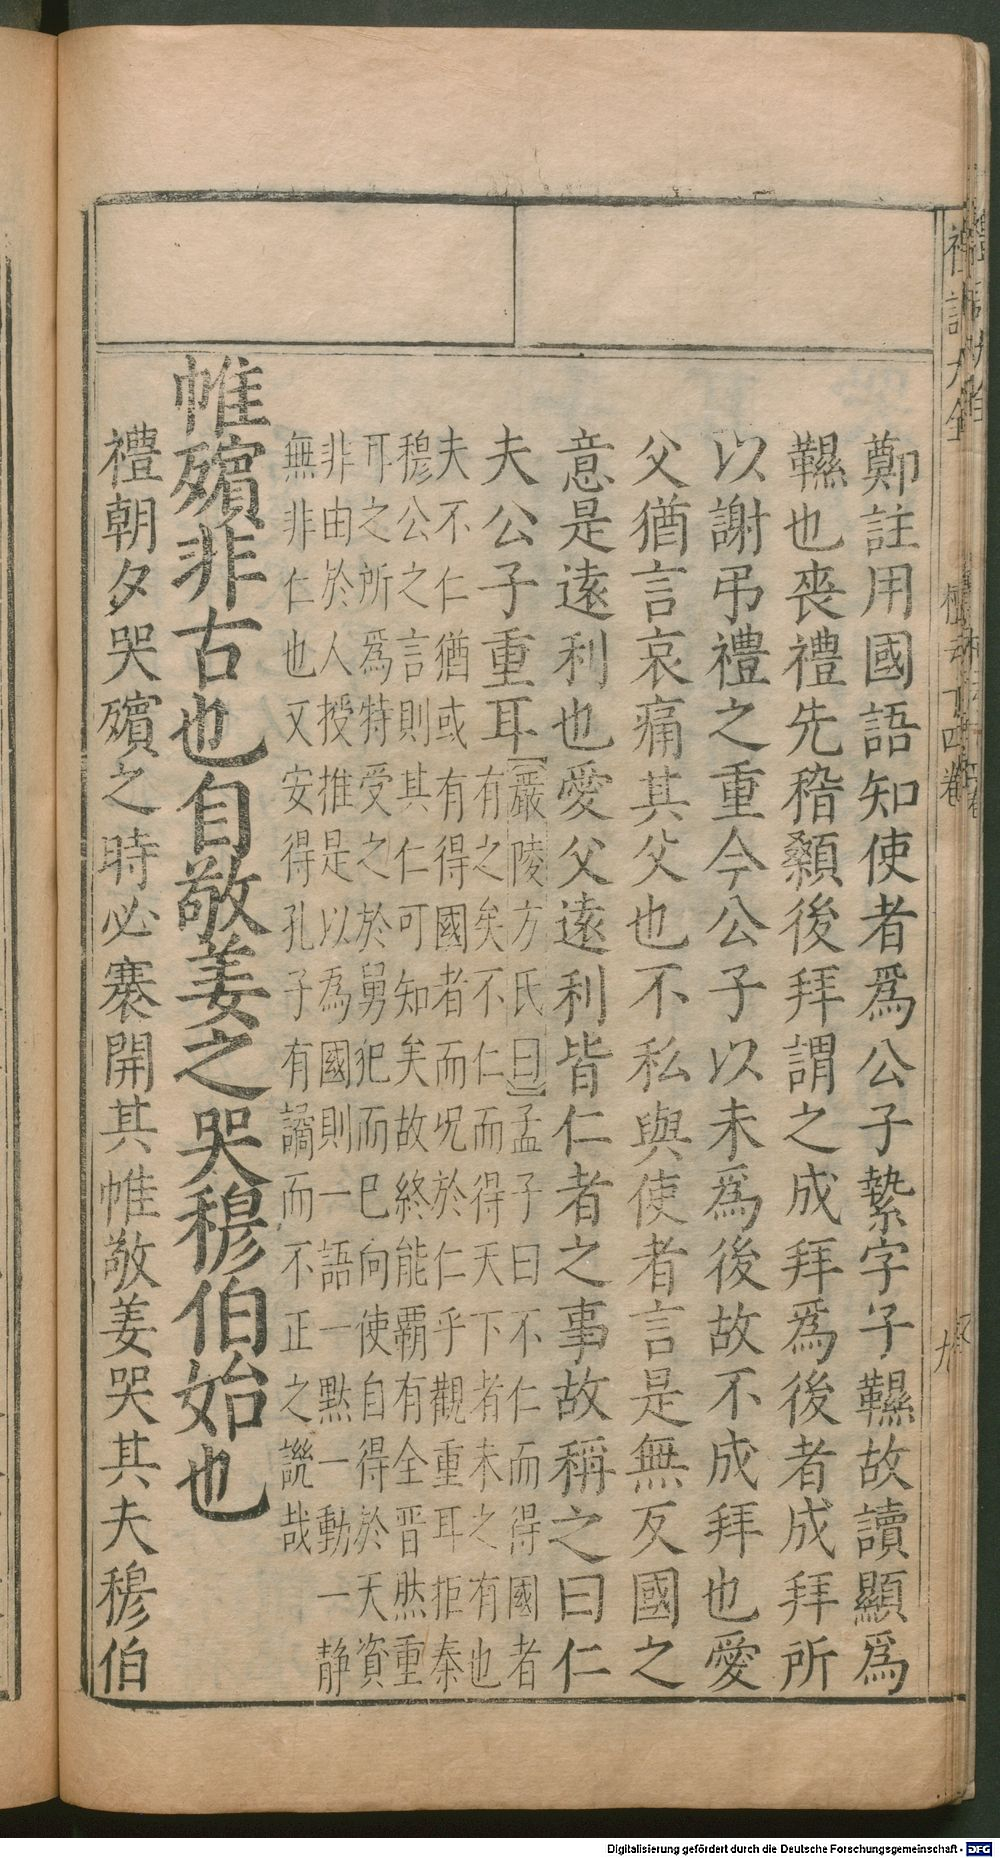 鄭註用國語知使者爲公子縶字子韅故讀顯爲
韅也喪禮先稽顙後拜謂之成拜爲後者成拜所
以謝弔禮之重今公子以未爲後故不成拜也愛
父猶言哀痛其父也不私與使者言是無反國之
意是遠利也愛父遠利皆仁者之事故稱之曰仁
夫公子重耳
嚴陵方氏曰孟子曰不仁而得國者
有之矣不仁而得天下者未之有也
夫不仁猶或有得國者而况於仁乎觀重耳拒秦
穆公之言則其仁可知矣故終能霸有全晋然重
耳之所爲特受之於舅犯而已向使自得於天資
非由於人授推是以爲國則一語一點一動一静
無非仁也又安得孔子有譎而不正之譏哉
帷殯非古也自敬姜之哭穆伯始也
禮朝夕哭殯之時必褰開其帷敬姜哭其夫穆伯
禮記大全
檀弓下四卷
九
Digitalisierung gefördert durch die Deutsche Forschungsgemeinschaft - DFG